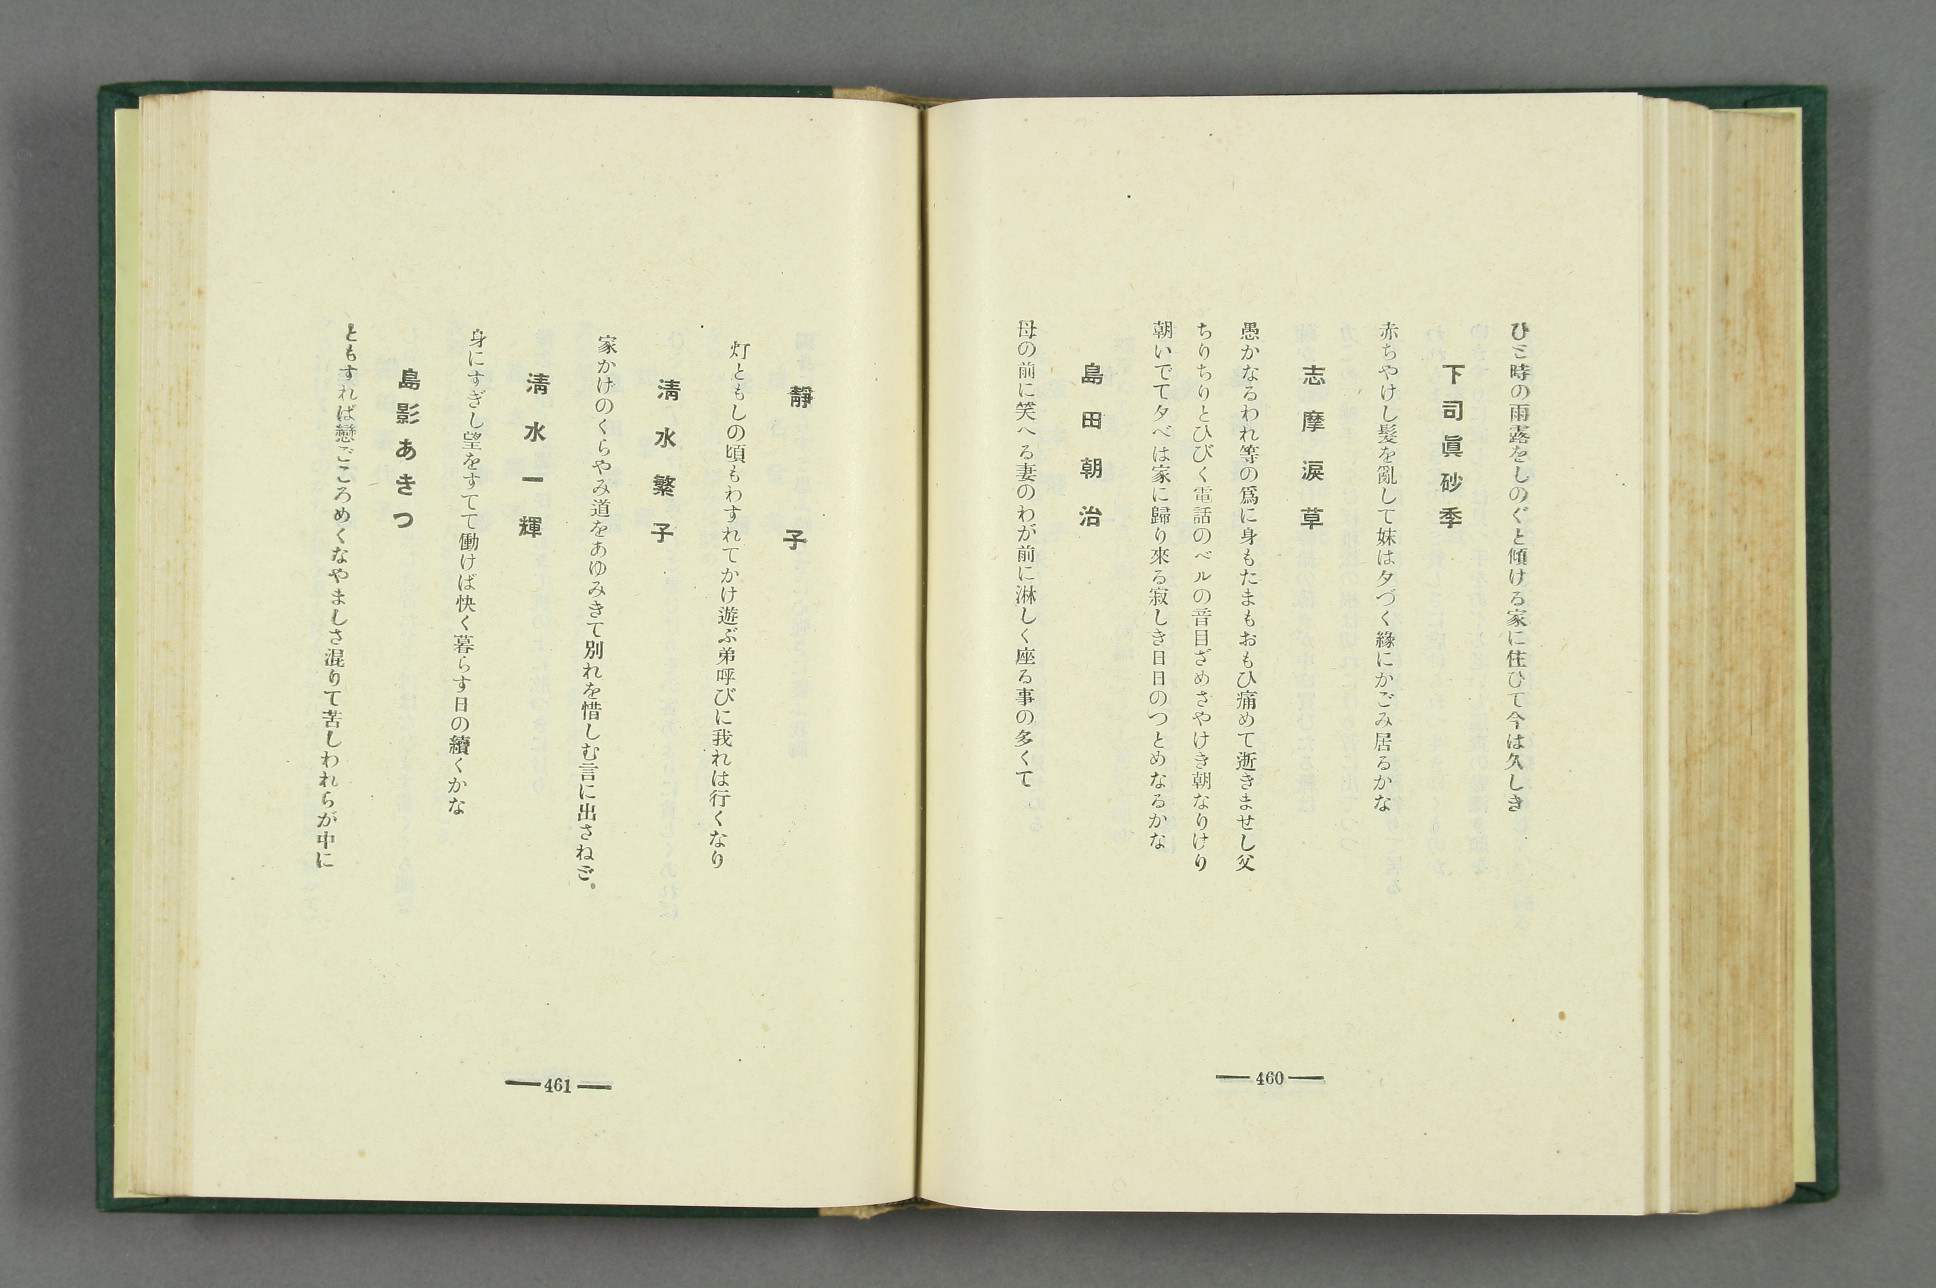 ひと時の雨露をしのぐと傾ける家に住ひて今は久しき
下司眞砂季
赤ちやけし髮を亂して妹は夕づく緣にかごみ居るかな
志摩淚草
愚かなるわれ等の爲に身もたまもおもひ痛めて逝きませし父
ちりちりとひびく電話のベルの音目ざめさやけき朝なりけり
朝いでて夕べは家に歸り來る寂しき日日のつとめなるかな
島田朝治
母の前に笑へる妻のわが前に淋しく座る事の多くて
460
靜子
灯ともしの頃もわすれてかけ遊ぶ弟呼びに我れは行くなり
淸水繁子
家かけのくらやみ道をあゆみきて別れを惜しむ言に出さねど。
淸水一輝
身にすぎし望をすてて働けば快く暮らす日の續くかな
島影あきつ
ともすれば戀ごころめくなやましさ混りて苦しわれらが中に
461